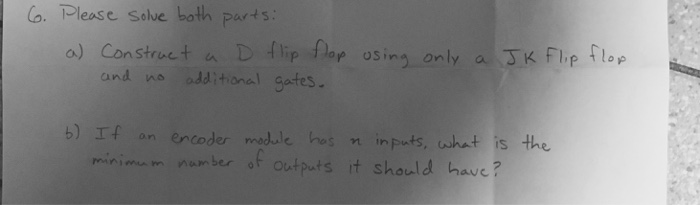 6. Please solve both parts:
a) Construct a D flip flop using only a JK Flip flop
and no additional gates.
b) If an encoder module has n inputs, what is the
minimum number of outputs it should have?